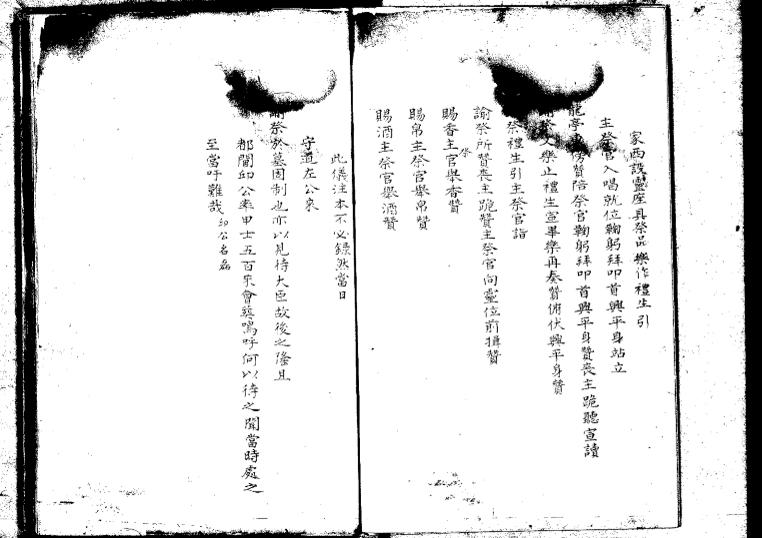 家西設靈座具祭品樂作禮生引
主祭官入唱就位鞠躬拜叩首興平身站立
龍亭東傍贊陪祭官鞠躬拜叩首興平身贊喪主跪聽宣讀
文樂止禮生宣畢樂再奏贊俯伏興平身贊
祭禮生引主祭官詣
諭祭所贊喪主跪贊主祭官向靈位前揖贊
賜香主祭官舉香贊
賜帛主祭官舉帛贊
賜酒主祭官舉酒贊
此儀注本不必錄然當日
守道左公來
諭祭於墓固制也亦以見待大臣故後之隆且
都閫邱公率甲士五百來會葬嗚呼何以待之聞當時處之
至當吁難哉 邱公名磊